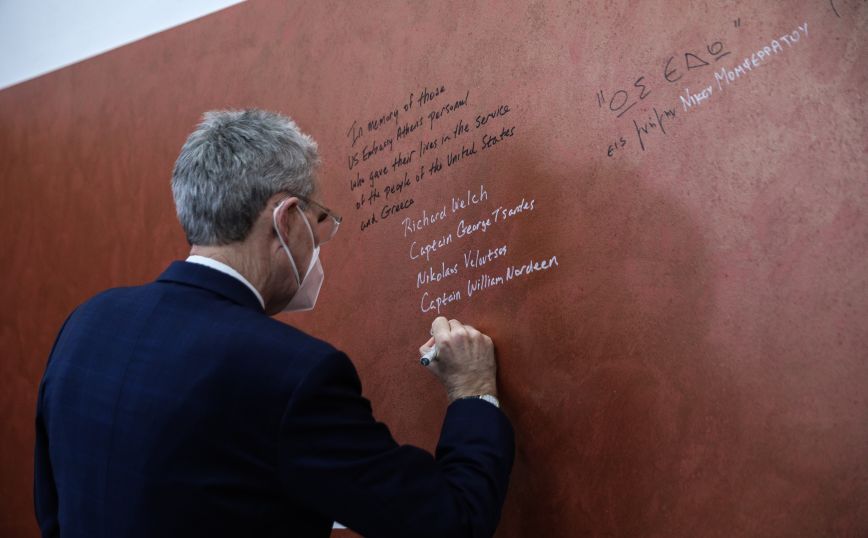 In memory of those
US Embassy Athens personel
who gave their lives in the service
of the people of the United States
and Greece
Richard Welch
Captain George Tsantes
Nikolaos Veloutsos
Captain William Nordeen
"ΩΣ ΕΔΩ"
εις μνήμην Νίκου Μομφερράτου